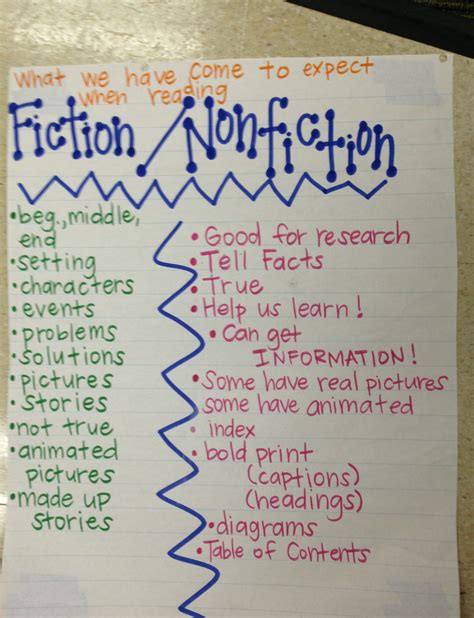 What we have come to expect
when reading
Fiction/Nonfiction
•beg., middle,
end
•setting
•characters
•events
•problems
•solutions
•pictures
•stories
•not true
•animated
pictures
•made up
stories
•Good for research
•Tell Facts
•True
•Help us learn!
•Can get
INFORMATION!
•Some have real pictures
some have animated
•index
•bold print
(captions)
(headings)
•diagrams
•Table of Contents